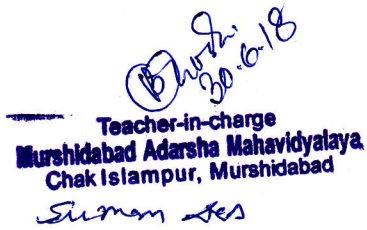 30.6.18
Teacher-in-charge
Murshidabad Adarsha Mahavidyalaya
Chak Islampur, Murshidabad
Suman Das